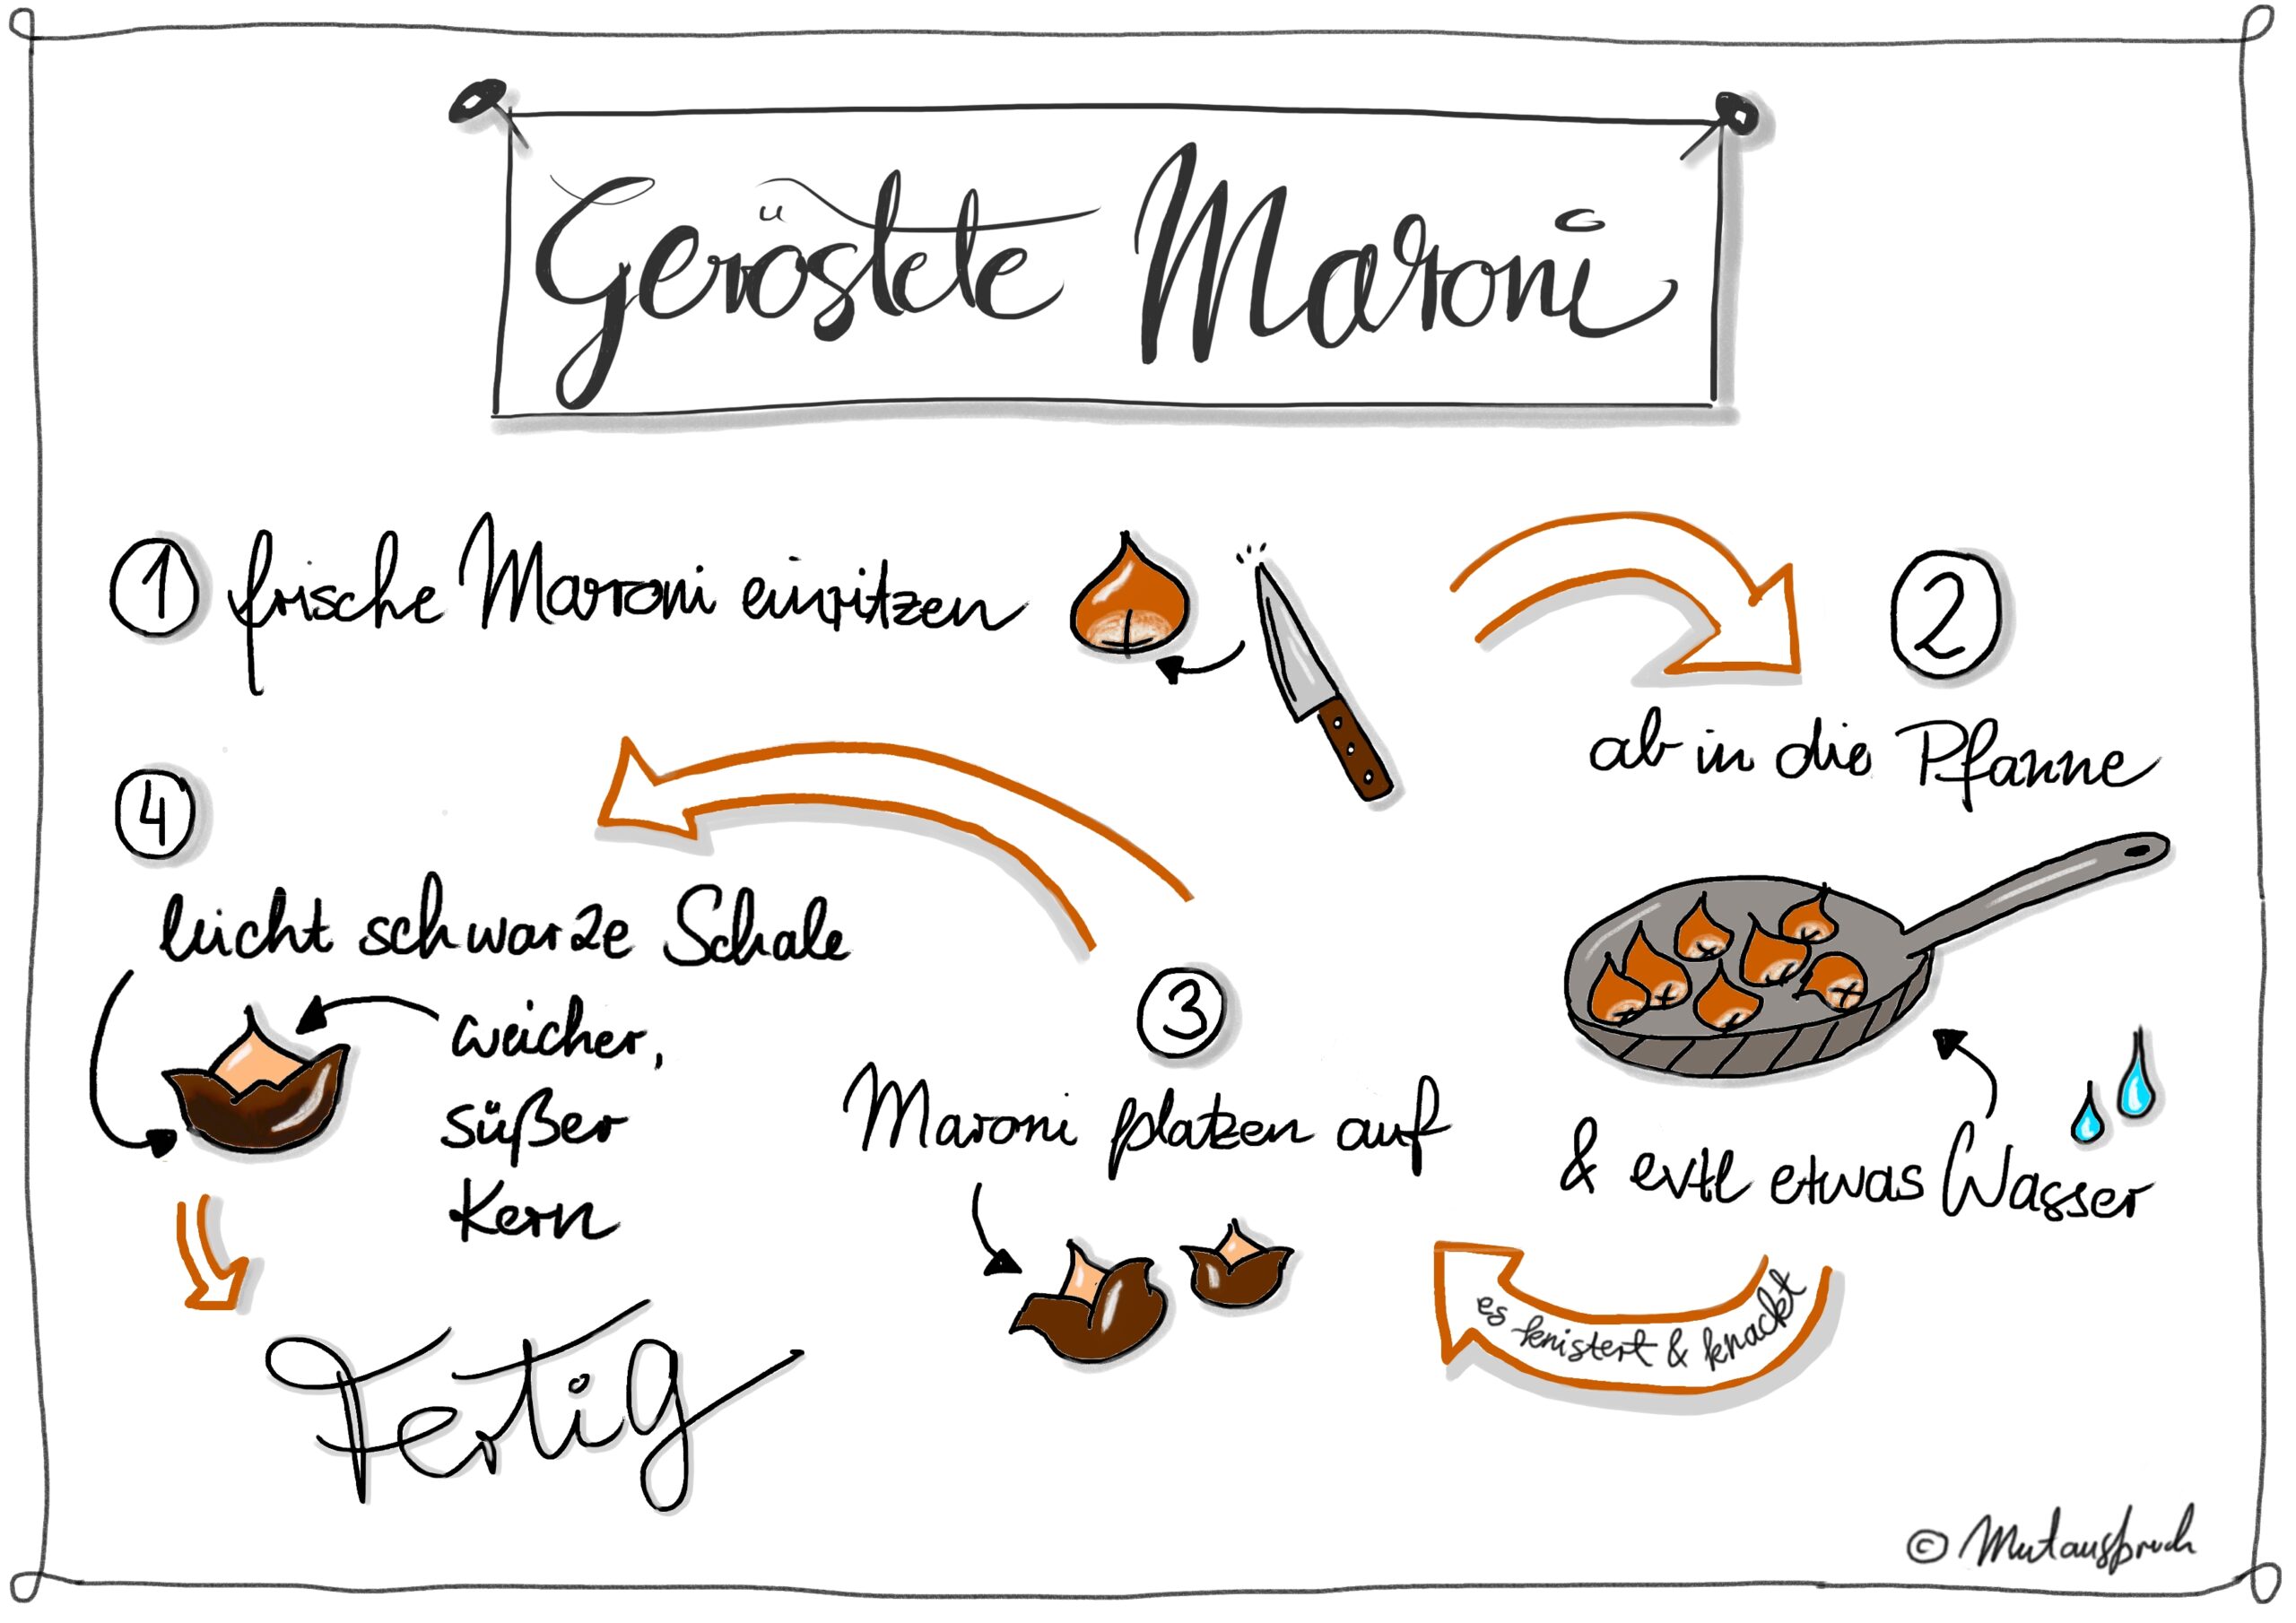 Geröstete Maroni
1 frische Maroni einritzen
2
ab in die Pfanne
& evtl etwas Wasser
es knistert & knackt
3
Maroni platzen auf
4
leicht schwarze Schale
weicher,
süßer
Kern
Fertig
© Mutausbruch